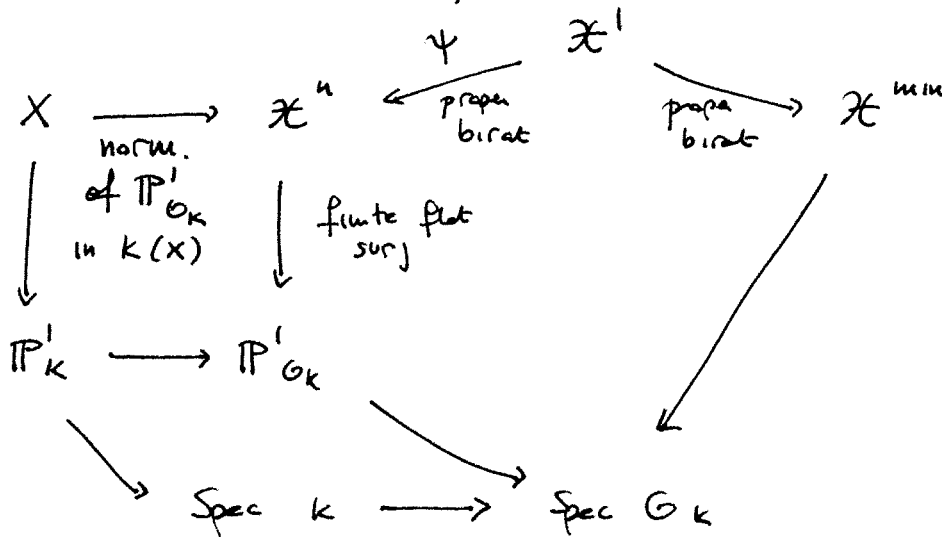 Ψ 𝒳'
X 𝒳ⁿ proper birat proper birat 𝒳ᵐⁱⁿ
norm. of ℙ¹_𝒪_K in K(X)
finite flat surj
ℙ¹_K ℙ¹_𝒪_K
Spec K Spec 𝒪_K